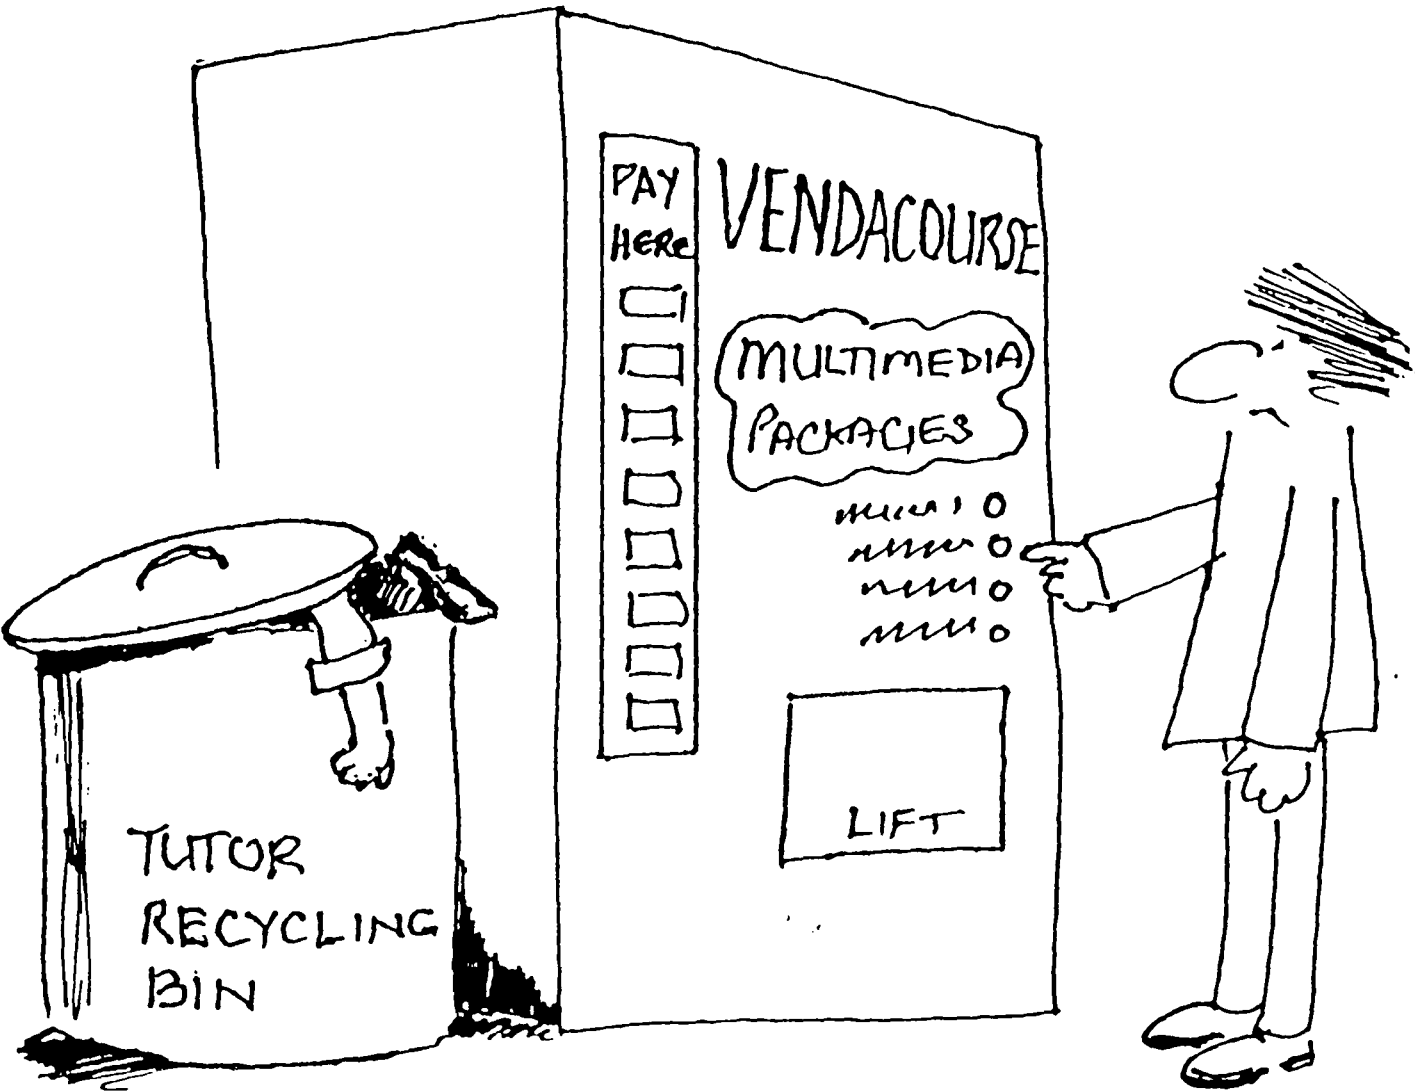 PAY
HERE
VENDACOURSE
MULTIMEDIA
PACKAGES
LIFT
TUTOR
RECYCLING
BIN